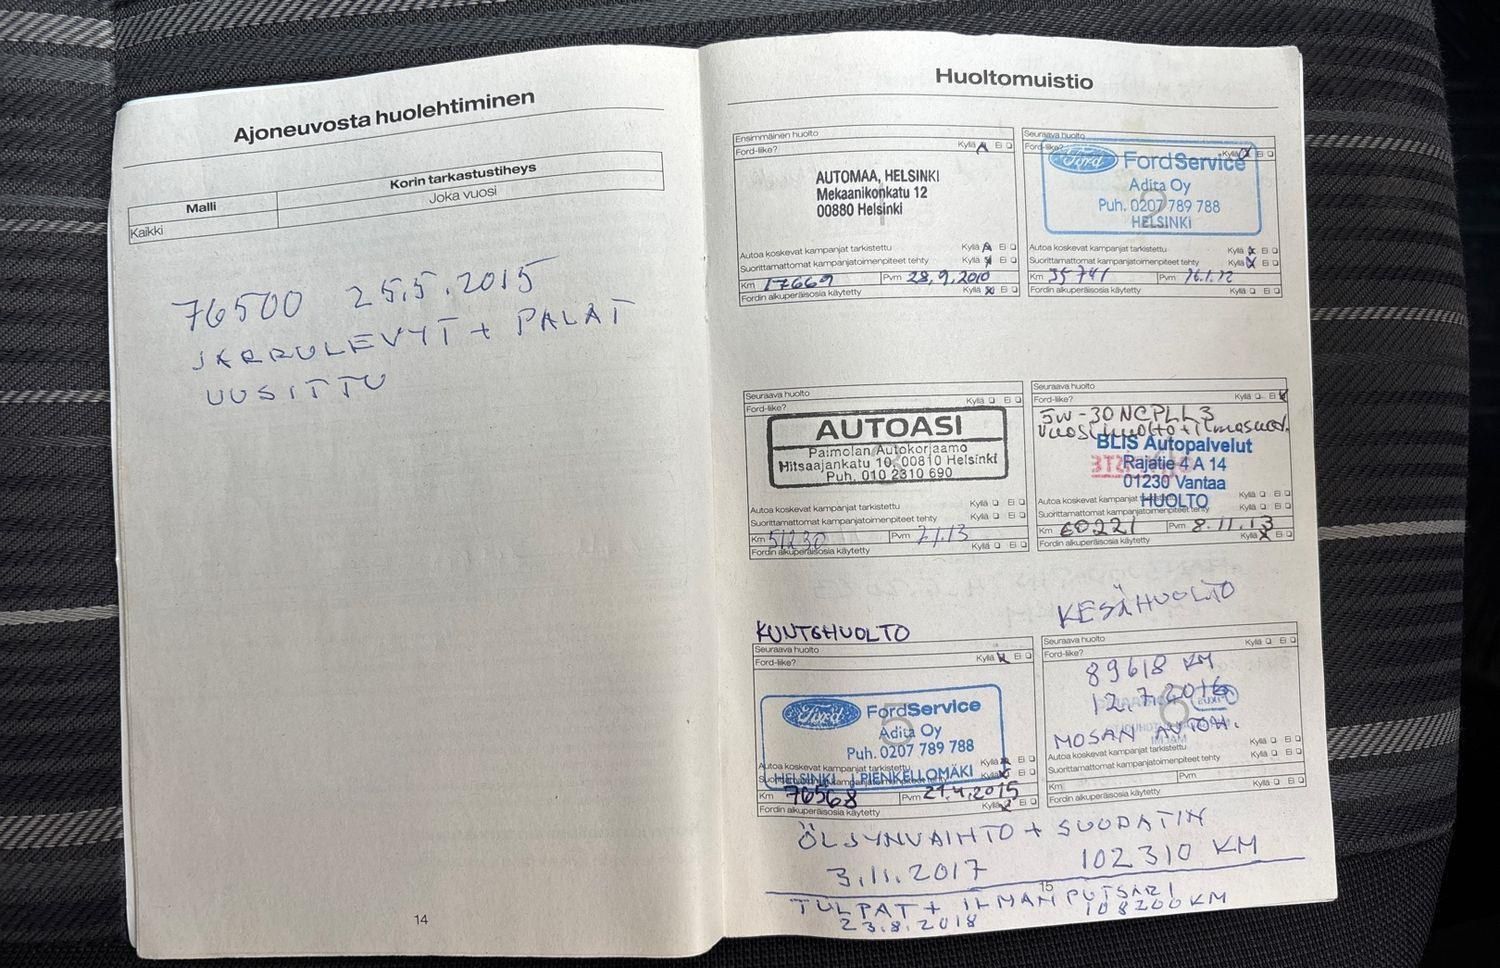 Ajoneuvosta huolehtiminen
Malli
Korin tarkastustiheys
Kaikki
Joka vuosi
76500 25.5.2015
JARRULEVYT + PALAT
UUSITTU
14
Huoltomuistio
Ensimmäinen huolto
Ford-liike? Kyllä Ei
AUTOMAA, HELSINKI
Mekaanikonkatu 12
00880 Helsinki
Autoa koskevat kampanjat tarkistettu Kyllä Ei
Suorittamattomat kampanjatoimenpiteet tehty Kyllä Ei
Km 17669 Pvm 28.9.2010
Fordin alkuperäisosia käytetty Kyllä Ei
Seuraava huolto
Ford-liike? Kyllä Ei
Ford FordService
Adita Oy
Puh. 0207 789 788
HELSINKI
2
Autoa koskevat kampanjat tarkistettu Kyllä Ei
Suorittamattomat kampanjatoimenpiteet tehty Kyllä Ei
Km 35741 Pvm 16.1.12
Fordin alkuperäisosia käytetty Kyllä Ei
Seuraava huolto
Ford-liike? Kyllä Ei
AUTOASI
Paimolan Autokorjaamo
Hitsaajankatu 10, 00810 Helsinki
Puh. 010 2310 690
Autoa koskevat kampanjat tarkistettu Kyllä Ei
Suorittamattomat kampanjatoimenpiteet tehty Kyllä Ei
Km 51230 Pvm 7.1.13
Fordin alkuperäisosia käytetty Kyllä Ei
Seuraava huolto
Ford-liike? Kyllä Ei
5W-30
Vuosihuolto +
BLIS Autopalvelut
Rajatie 4 A 14
01230 Vantaa
HUOLTO
Autoa koskevat kampanjat tarkistettu Kyllä Ei
Suorittamattomat kampanjatoimenpiteet tehty Kyllä Ei
Km 60221 Pvm 8.11.13
Fordin alkuperäisosia käytetty Kyllä Ei
KUNTOHUOLTO
Seuraava huolto
Ford-liike? Kyllä Ei
5
Ford FordService
Adita Oy
Puh. 0207 789 788
HELSINKI J.PIENKELLOMÄKI
Autoa koskevat kampanjat tarkistettu Kyllä
Km 76568 Pvm 21.4.2015
Fordin alkuperäisosia käytetty Kyllä Ei
KESÄHUOLTO
Seuraava huolto
Ford-liike? Kyllä Ei
89618 KM
12.7.2016
6
MOSAN AUTOH.
Autoa koskevat kampanjat tarkistettu Kyllä Ei
Suorittamattomat kampanjatoimenpiteet tehty Kyllä Ei
Km Pvm
Fordin alkuperäisosia käytetty Kyllä Ei
ÖLJYNVAIHTO + SUODATIN
3.11.2017 102310 KM
15
TULPAT + ILMANPUTSARI
23.8.2018 108200 KM